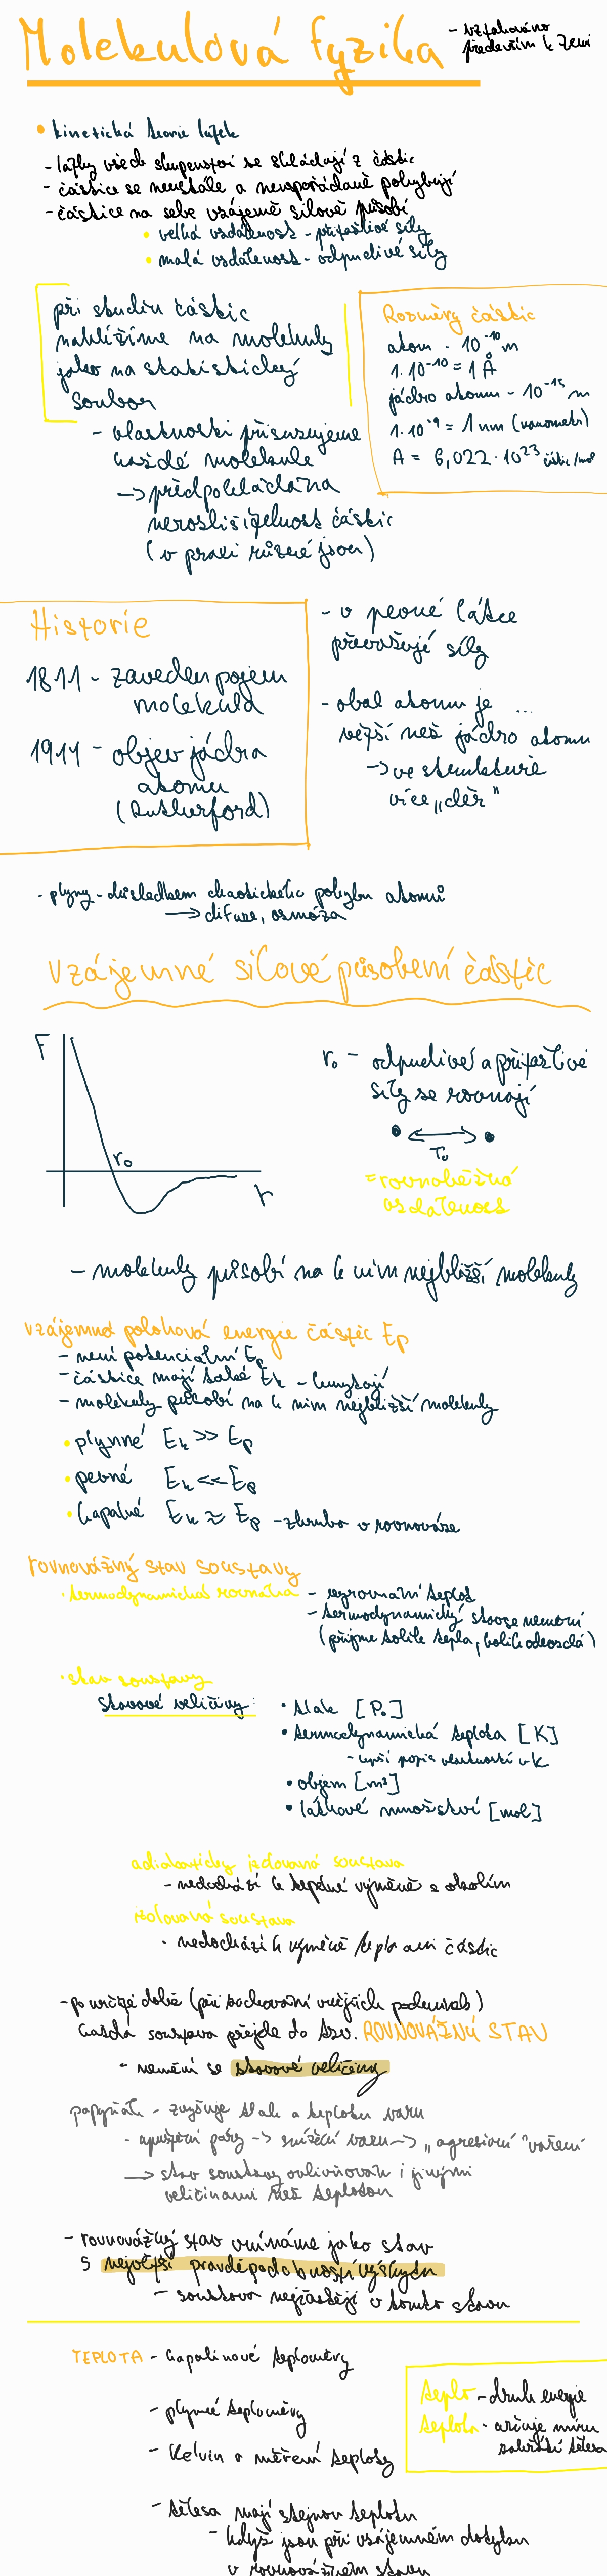 Molekulová fyzika
- vztahováno
především k Zemi
• kinetická teorie látek
- látky všech skupenství se skládají z částic
- částice se neustále a neuspořádaně pohybují
- částice na sebe vzájemě silově působí
• velká vzdálenost - přitažlivé síly
• malá vzdálenost - odpudivé síly
při studiu částic
nahlížíme na molekuly
jako na statistický
soubor
- vlastnosti přisuzujeme
každé molekule
→ předpokládána
nerozlišitelnost částic
(v praxi různé jsou)
Rozměry částic
atom - 10⁻¹⁰ m
1·10⁻¹⁰ = 1 Å
jádro atomu - 10⁻¹⁵ m
1·10⁻⁹ = 1 nm (nanometr)
A = 6,022·10²³ částic/mol
Historie
1811 - zaveden pojem
molekula
1911 - objev jádra
atomu
(Rutherford)
- v pevné látce
převažují síly
- obal atomu je ...
větší než jádro atomu
→ ve struktuře
více „děr"
- plyny - důsledkem chaotického pohybu atomů
→ difuze, osmóza
Vzájemné silové působení částic
F
r₀
r
r₀ - odpudivé a přitažlivé
síly se rovnají
r₀
= rovnoběžná
vzdálenost
- molekuly působí na k nim nejbližší molekuly
vzájemná polohová energie částic Ep
- není potenciální Ep
- částice mají také Ek - kmitají
- molekuly působí na k nim nejbližší molekuly
• plynné Ek >> Ep
• pevné Ek << Ep
• kapalné Ek ≈ Ep - zhruba v rovnováze
rovnovážný stav soustavy
• termodynamická rovnováha - vyrovnání teplot
- termodynamický stav se nemění
(přijme tolik tepla, kolik odevzdá)
• stav soustavy
stavové veličiny:
• tlak [Pa]
• termodynamická teplota [K]
- lepší popis vlastností v K
• objem [m³]
• látkové množství [mol]
adiabaticky izolovaná soustava
- nedochází k tepelné výměně s okolím
izolovaná soustava
- nedochází k výměně tepla ani částic
- po určité době (při zachování vnějších podmínek)
každá soustava přejde do tzv. ROVNOVÁŽNÝ STAV
- nemění se stavové veličiny
papiňák - zvyšuje tlak a teplotu varu
- upuštění páry → snížení varu → „agresivní" vaření
→ stav soustavy ovlivňován i jinými
veličinami než teplotou
- rovnovážný stav vnímáme jako stav
s největší pravděpodobností výskytu
- soustava nejčastěji v tomto stavu
TEPLOTA - kapalinové teploměry
- plynné teploměry
- Kelvin o měření teploty
teplo - druh energie
teplota - určuje míru
zahřátí tělesa
- tělesa mají stejnou teplotu
- když jsou při vzájemném dotyku
v rovnovážném stavu